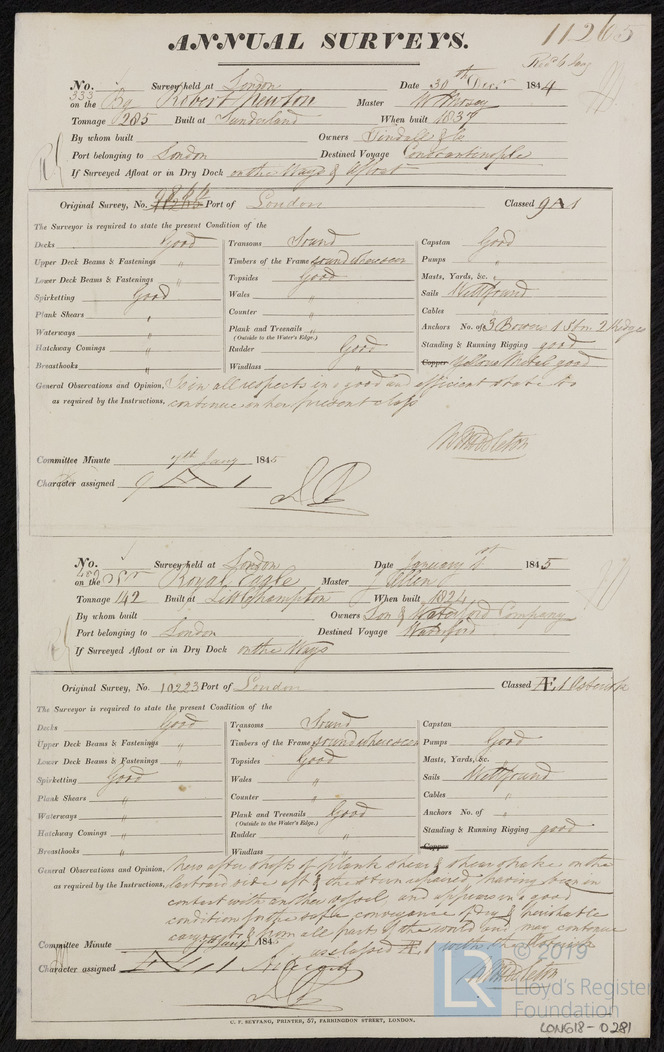 11265
ANNUAL SURVEYS.
No. 333 Survey held at London Date 30th Decr 1844
on the Bg Robert Newton Master
Tonnage 285 Built at Sunderland When built 1837
By whom built Owners Tindall & Co
Port belonging to London Destined Voyage Constantinople
If Surveyed Afloat or in Dry Dock on the Ways & Afloat
Original Survey, No. Port of London Classed 9 A 1
The Surveyor is required to state the present Condition of the
Decks Good Transoms Sound Capstan Good
Upper Deck Beams & Fastenings " Timbers of the Frame sound where seen Pumps "
Lower Deck Beams & Fastenings " Topsides Good Masts, Yards, &c. "
Spirketting Good Wales " Sails Well found
Plank Shears " Counter " Cables "
Waterways " Plank and Treenails " Anchors No. of 3 Bowers 1 Strm 2 Kedges
(Outside to the Water's Edge.)
Hatchway Comings " Rudder Good Standing & Running Rigging good
Breasthooks " Windlass " Copper Yellow Metal good
General Observations and Opinion, Is in all respects in a good and efficient state to
as required by the Instructions, continue in her present class
Committee Minute 7th Jany 1845
Character assigned 9 A 1
No. 400 Survey held at London Date January 1st 1845
on the Scr Royal Eagle Master J Allen
Tonnage 142 Built at Littlehampton When built 1824
By whom built Owners Lon & Waterford Company
Port belonging to London Destined Voyage Waterford
If Surveyed Afloat or in Dry Dock on the Ways
Original Survey, No. 10223 Port of London Classed Æ 1 Asterisk
The Surveyor is required to state the present Condition of the
Decks Good Transoms Sound Capstan
Upper Deck Beams & Fastenings " Timbers of the Frame sound where seen Pumps Good
Lower Deck Beams & Fastenings " Topsides Good Masts, Yards, &c. "
Spirketting Good Wales " Sails Well found
Plank Shears " Counter " Cables "
Waterways " Plank and Treenails Good Anchors No. of "
(Outside to the Water's Edge.)
Hatchway Comings " Rudder " Standing & Running Rigging good
Breasthooks " Windlass " Copper
General Observations and Opinion, New after shifts of plank shear & shear strake on the
as required by the Instructions, larboard side aft & the stern repaired having been in
contact with another vessel, and appears in a good
condition for the safe conveyance of dry & perishable
cargoes to & from all parts of the world and may continue
Committee Minute Jany 1845 as classed Æ 1 with the Asterisk
Character assigned
© 2019
LR Lloyd's Register
Foundation
C. F. SEYFANG, PRINTER, 57, FARRINGDON STREET, LONDON.
LON618-0281